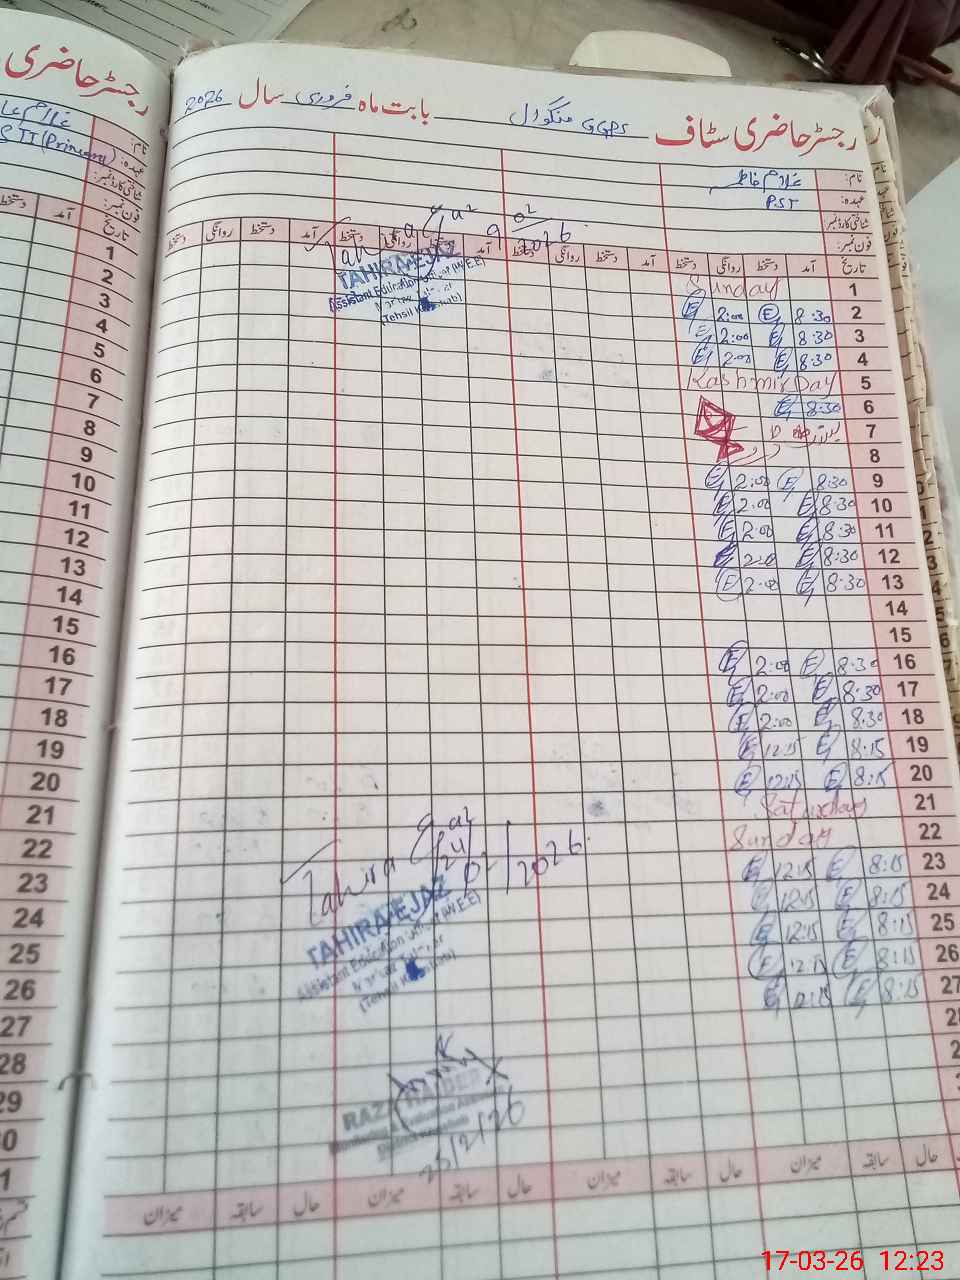 رجسٹر حاضری سٹاف GGPS منگوال بابت ماہ فروری سال 2026
نام: غلام فاطمہ
عہدہ: PST
شناختی کارڈ نمبر:
فون نمبر:
تاریخ آمد دستخط روانگی دستخط آمد دستخط روانگی دستخط آمد دستخط روانگی دستخط آمد دستخط روانگی دستخط
1 Sunday
2 8:30 2:00
3 8:30 2:00
4 8:30 2:00
5 Kashmir Day
6 8:30
7
8
9 8:30 2:00
10 8:30 2:00
11 8:30 2:00
12 8:30 2:00
13 8:30 2:00
14
15
16 8:30 2:00
17 8:30 2:00
18 8:30 2:00
19 8:15 12:15
20 8:15 12:15
21 Saturday
22 Sunday
23 8:15 12:15
24 8:15 12:15
25 8:15 12:15
26 8:15 12:15
27 8:15 12:15
حال سابقہ میزان حال سابقہ میزان حال سابقہ میزان حال سابقہ میزان
9/02/2026
TAHIRA EJAZ
Assistant Education Officer (W.E.E)
Tahira Ejaz
24/02/2026
TAHIRA EJAZ
Assistant Education Officer (W.E.E)
RAZA HAIDER
25/2/26
رجسٹر حاضری
نام:
عہدہ:
شناختی کارڈ نمبر:
فون نمبر:
تاریخ آمد دستخط
1
2
3
4
5
6
7
8
9
10
11
12
13
14
15
16
17
18
19
20
21
22
23
24
25
26
27
28
29
17-03-26 12:23